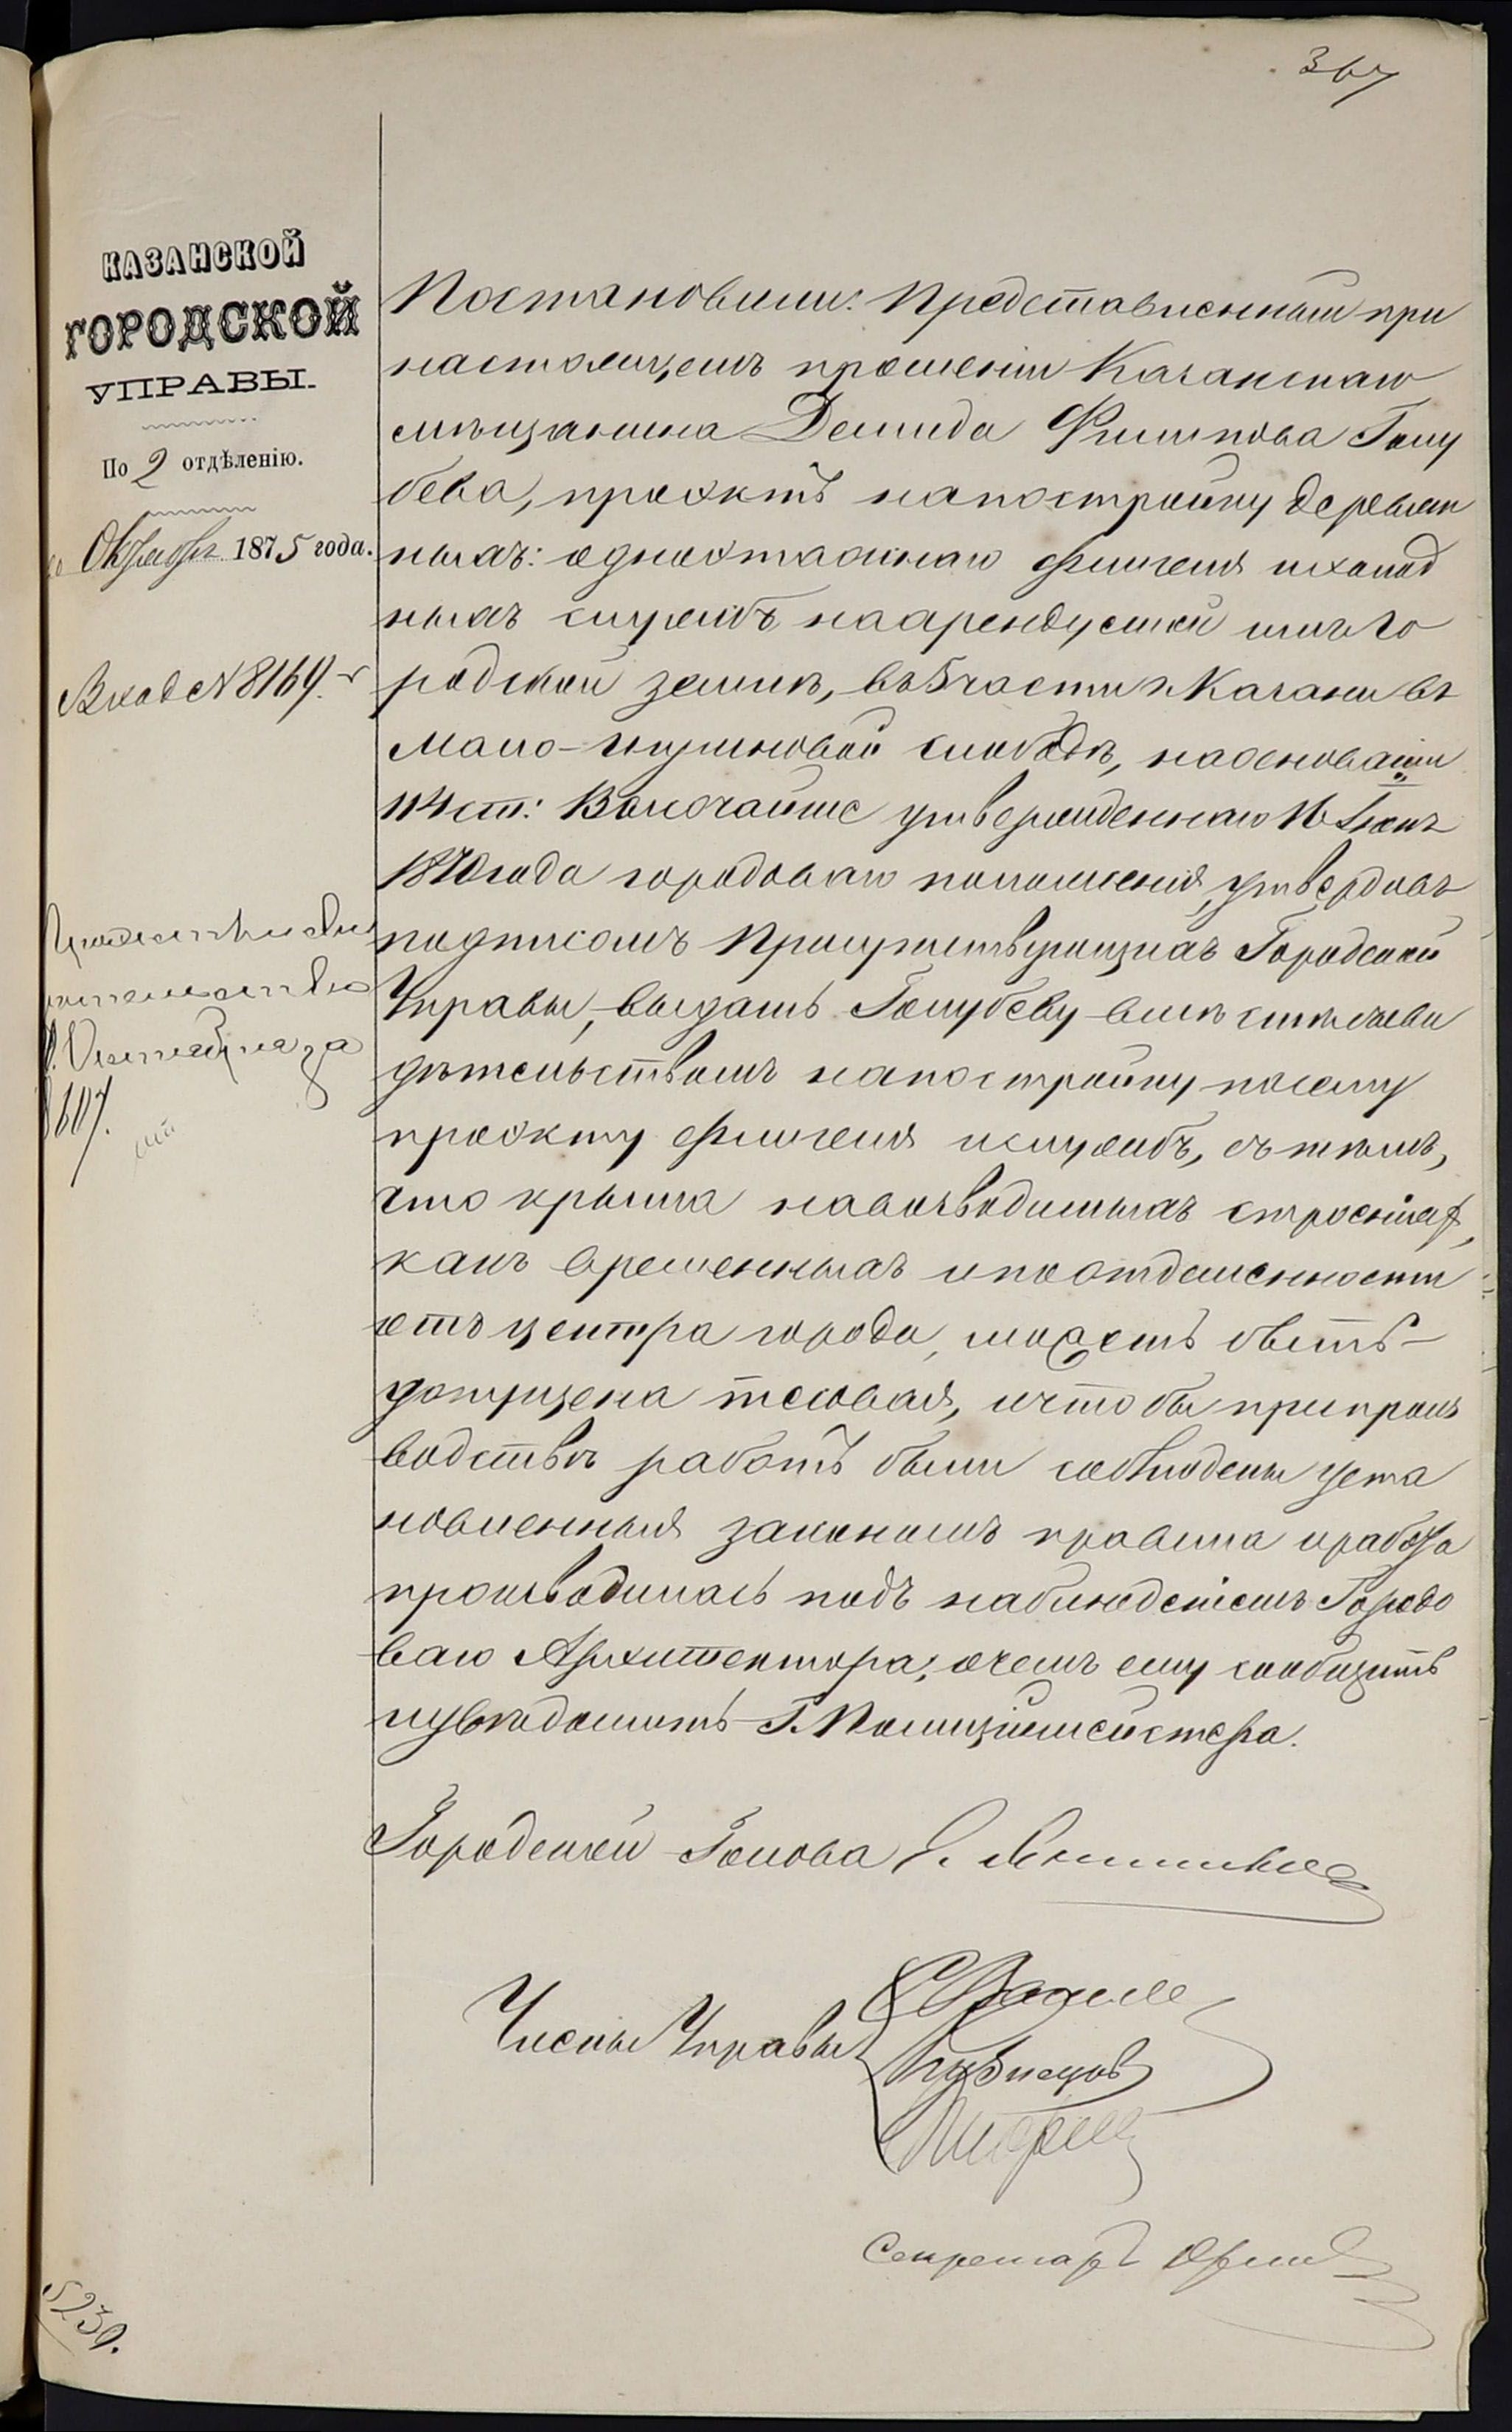 367
КАЗАНСКОЙ
ГОРОДСКОЙ
УПРАВЫ.
По 2 отдѣленію.
Октября 1875 года.
Вход № 8169.
Постановили: Представленный при
настоящемъ прошеніи Казанскаго
мѣщанина Демида Филипова Голу
бева, проэктъ на постройку деревян
ныхъ: одноэтажнаго флигеля и холод
ныхъ службъ на арендуемой имъ го
родской землѣ, въ 5 части г. Казани въ
Мало-Игумновой слободѣ, на основаніи
114 ст: Высочайше утвержденнаго 16 Іюня
1870 года городоваго положенія, утвердивъ
подписомъ Присутствующихъ Городской
Управы, выдать Голубеву вмѣстѣ съ сви
дѣтельствомъ на постройку по сему
проэкту флигеля и службъ, съ тѣмъ,
что крыша на возводимыхъ строеніях,
какъ временныхъ и по отдаленности
отъ центра города, можетъ быть
допущена тесовая, и чтобы при произ
водствѣ работъ были соблюдены уста
новленныя закономъ правила и работа
производилась подъ наблюденіемъ Городо
ваго Архитектора, о чемъ ему сообщить
и увѣдомить Г. Полиціймейстера.
Городской Голова Е.
Члены Управы
Кузнецов
Секретарь
5239.